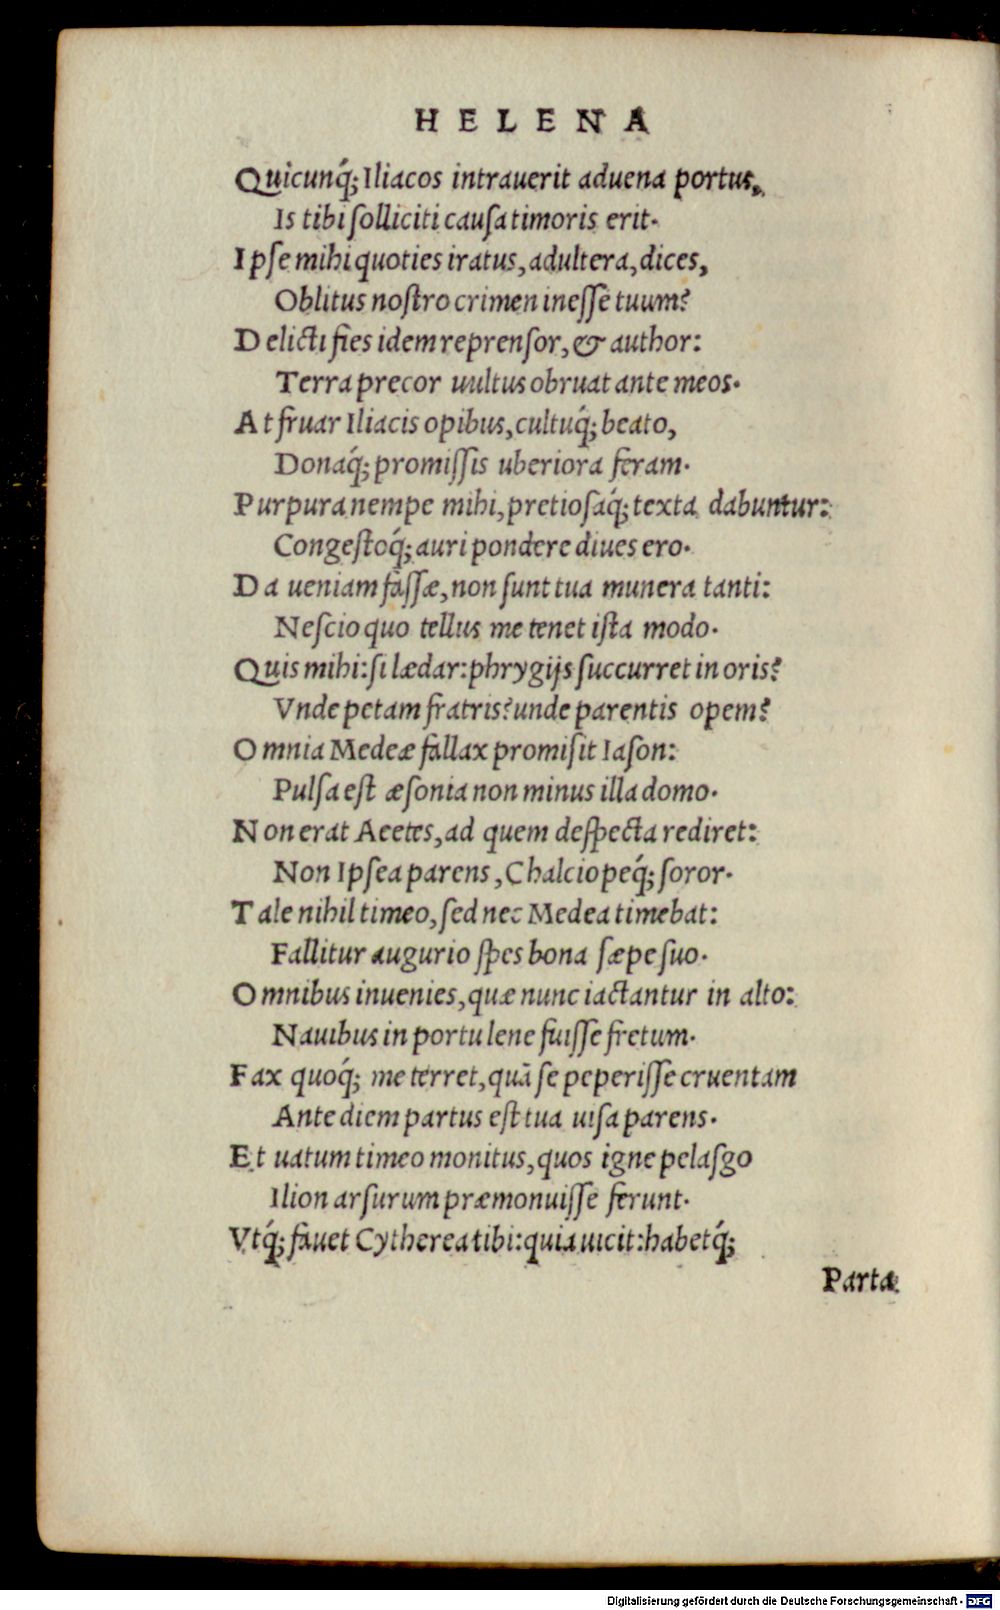 HELENA
Quicunq́; Iliacos intrauerit aduena portus,
Is tibi ſolliciti cauſa timoris erit.
Ipſe mihi quoties iratus, adultera, dices,
Oblitus noſtro crimen ineſſe tuum?
Delicti fies idem reprenſor, & author:
Terra precor uultus obruat ante meos.
At fruar Iliacis opibus, cultuq́; beato,
Donaq́; promiſſis uberiora feram.
Purpura nempe mihi, pretioſaq́; texta dabuntur:
Congeſtoq́; auri pondere diues ero.
Da ueniam faſſæ, non ſunt tua munera tanti:
Neſcio quo tellus me tenet iſta modo.
Quis mihi: ſi lædar: phrygijs ſuccurret in oris?
Vnde petam fratris? unde parentis opem?
Omnia Medeæ fallax promiſit Iaſon:
Pulſa eſt æſonia non minus illa domo.
Non erat Aeetes, ad quem deſpecta rediret:
Non Ipſea parens, Chalciopeq́; ſoror.
Tale nihil timeo, ſed nec Medea timebat:
Fallitur augurio ſpes bona ſæpe ſuo.
Omnibus inuenies, quæ nunc iactantur in alto:
Nauibus in portu lene fuiſſe fretum.
Fax quoq́; me terret, quã ſe peperiſſe cruentam
Ante diem partus eſt tua uiſa parens.
Et uatum timeo monitus, quos igne pelaſgo
Ilion arſurum præmonuiſſe ferunt.
Vtq́; fauet Cytherea tibi: quia uicit: habetq́;
Partæ
Digitalisierung gefördert durch die Deutsche Forschungsgemeinschaft - DFG